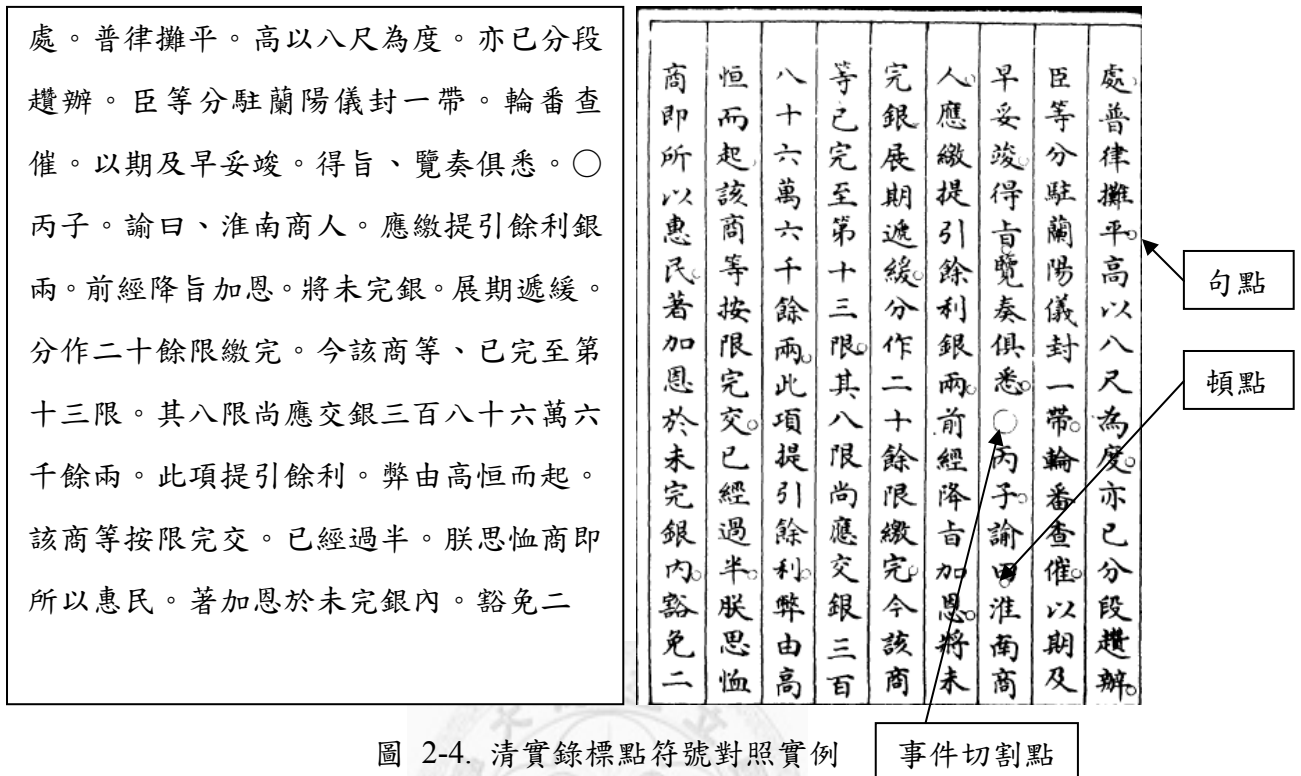 處。普律攤平。高以八尺為度。亦已分段
趲辦。臣等分駐蘭陽儀封一帶。輪番查
催。以期及早妥竣。得旨、覽奏俱悉。○
丙子。諭曰、淮南商人。應繳提引餘利銀
兩。前經降旨加恩。將未完銀。展期遞緩。
分作二十餘限繳完。今該商等、已完至第
十三限。其八限尚應交銀三百八十六萬六
千餘兩。此項提引餘利。弊由高恒而起。
該商等按限完交。已經過半。朕思恤商即
所以惠民。著加恩於未完銀內。豁免二
處。普律攤平。高以八尺為度。亦已分段趲辦。
臣等分駐蘭陽儀封一帶。輪番查催。以期及
早妥竣。得旨覽奏俱悉。○丙子。諭曰淮南商
人。應繳提引餘利銀兩。前經降旨加恩。將未
完銀展期遞緩。分作二十餘限繳完。今該商
等已完至第十三限。其八限尚應交銀三百
八十六萬六千餘兩。此項提引餘利。弊由高
恒而起。該商等按限完交。已經過半。朕思恤
商即所以惠民。著加恩於未完銀內。豁免二
句點
頓點
事件切割點
圖 2-4. 清實錄標點符號對照實例